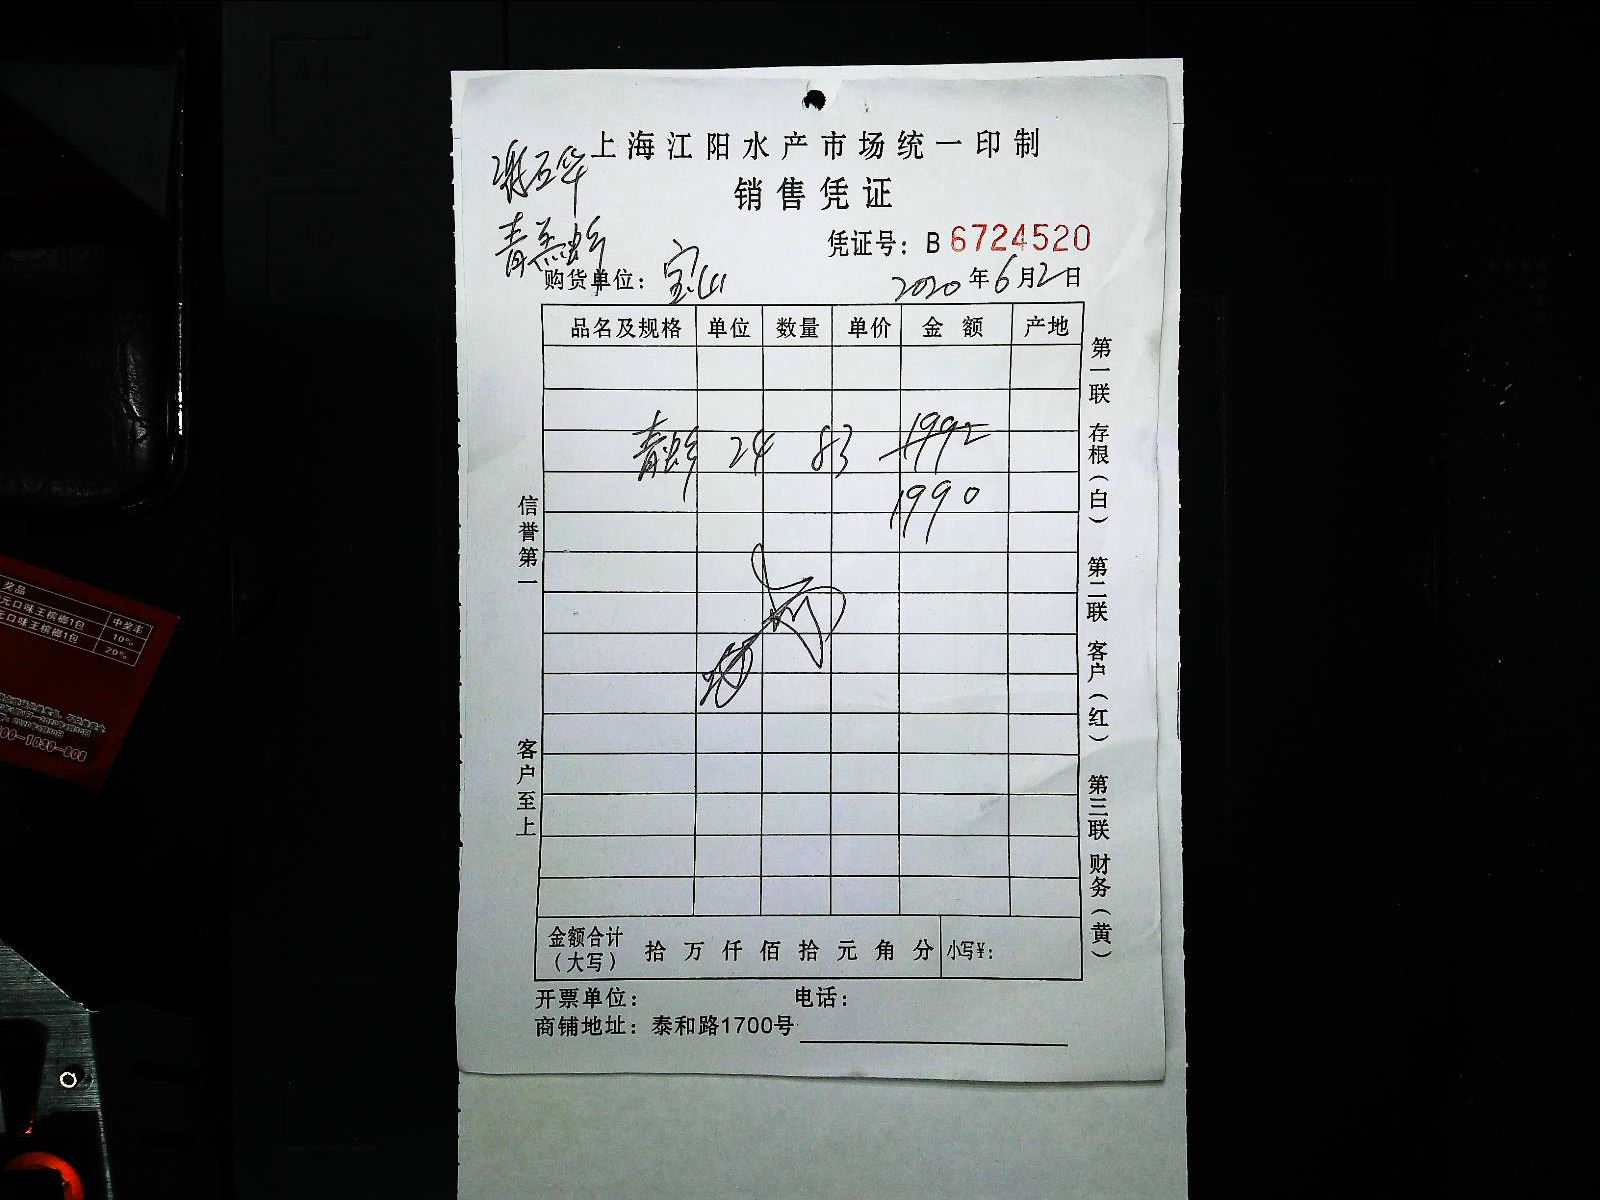 上海江阳水产市场统一印制
销售凭证
凭证号: B 6724520
购货单位: 宝山
2020年6月2日
品名及规格 单位 数量 单价 金额 产地
青虾 24 83 1992
1990
信誉第一
客户至上
第一联 存根(白) 第二联 客户(红) 第三联 财务(黄)
金额合计(大写) 拾万仟佰拾元角分 小写¥:
开票单位: 电话:
商铺地址: 泰和路1700号
奖品 中奖率
元口味王槟榔1包 10%
元口味王槟榔1包 20%